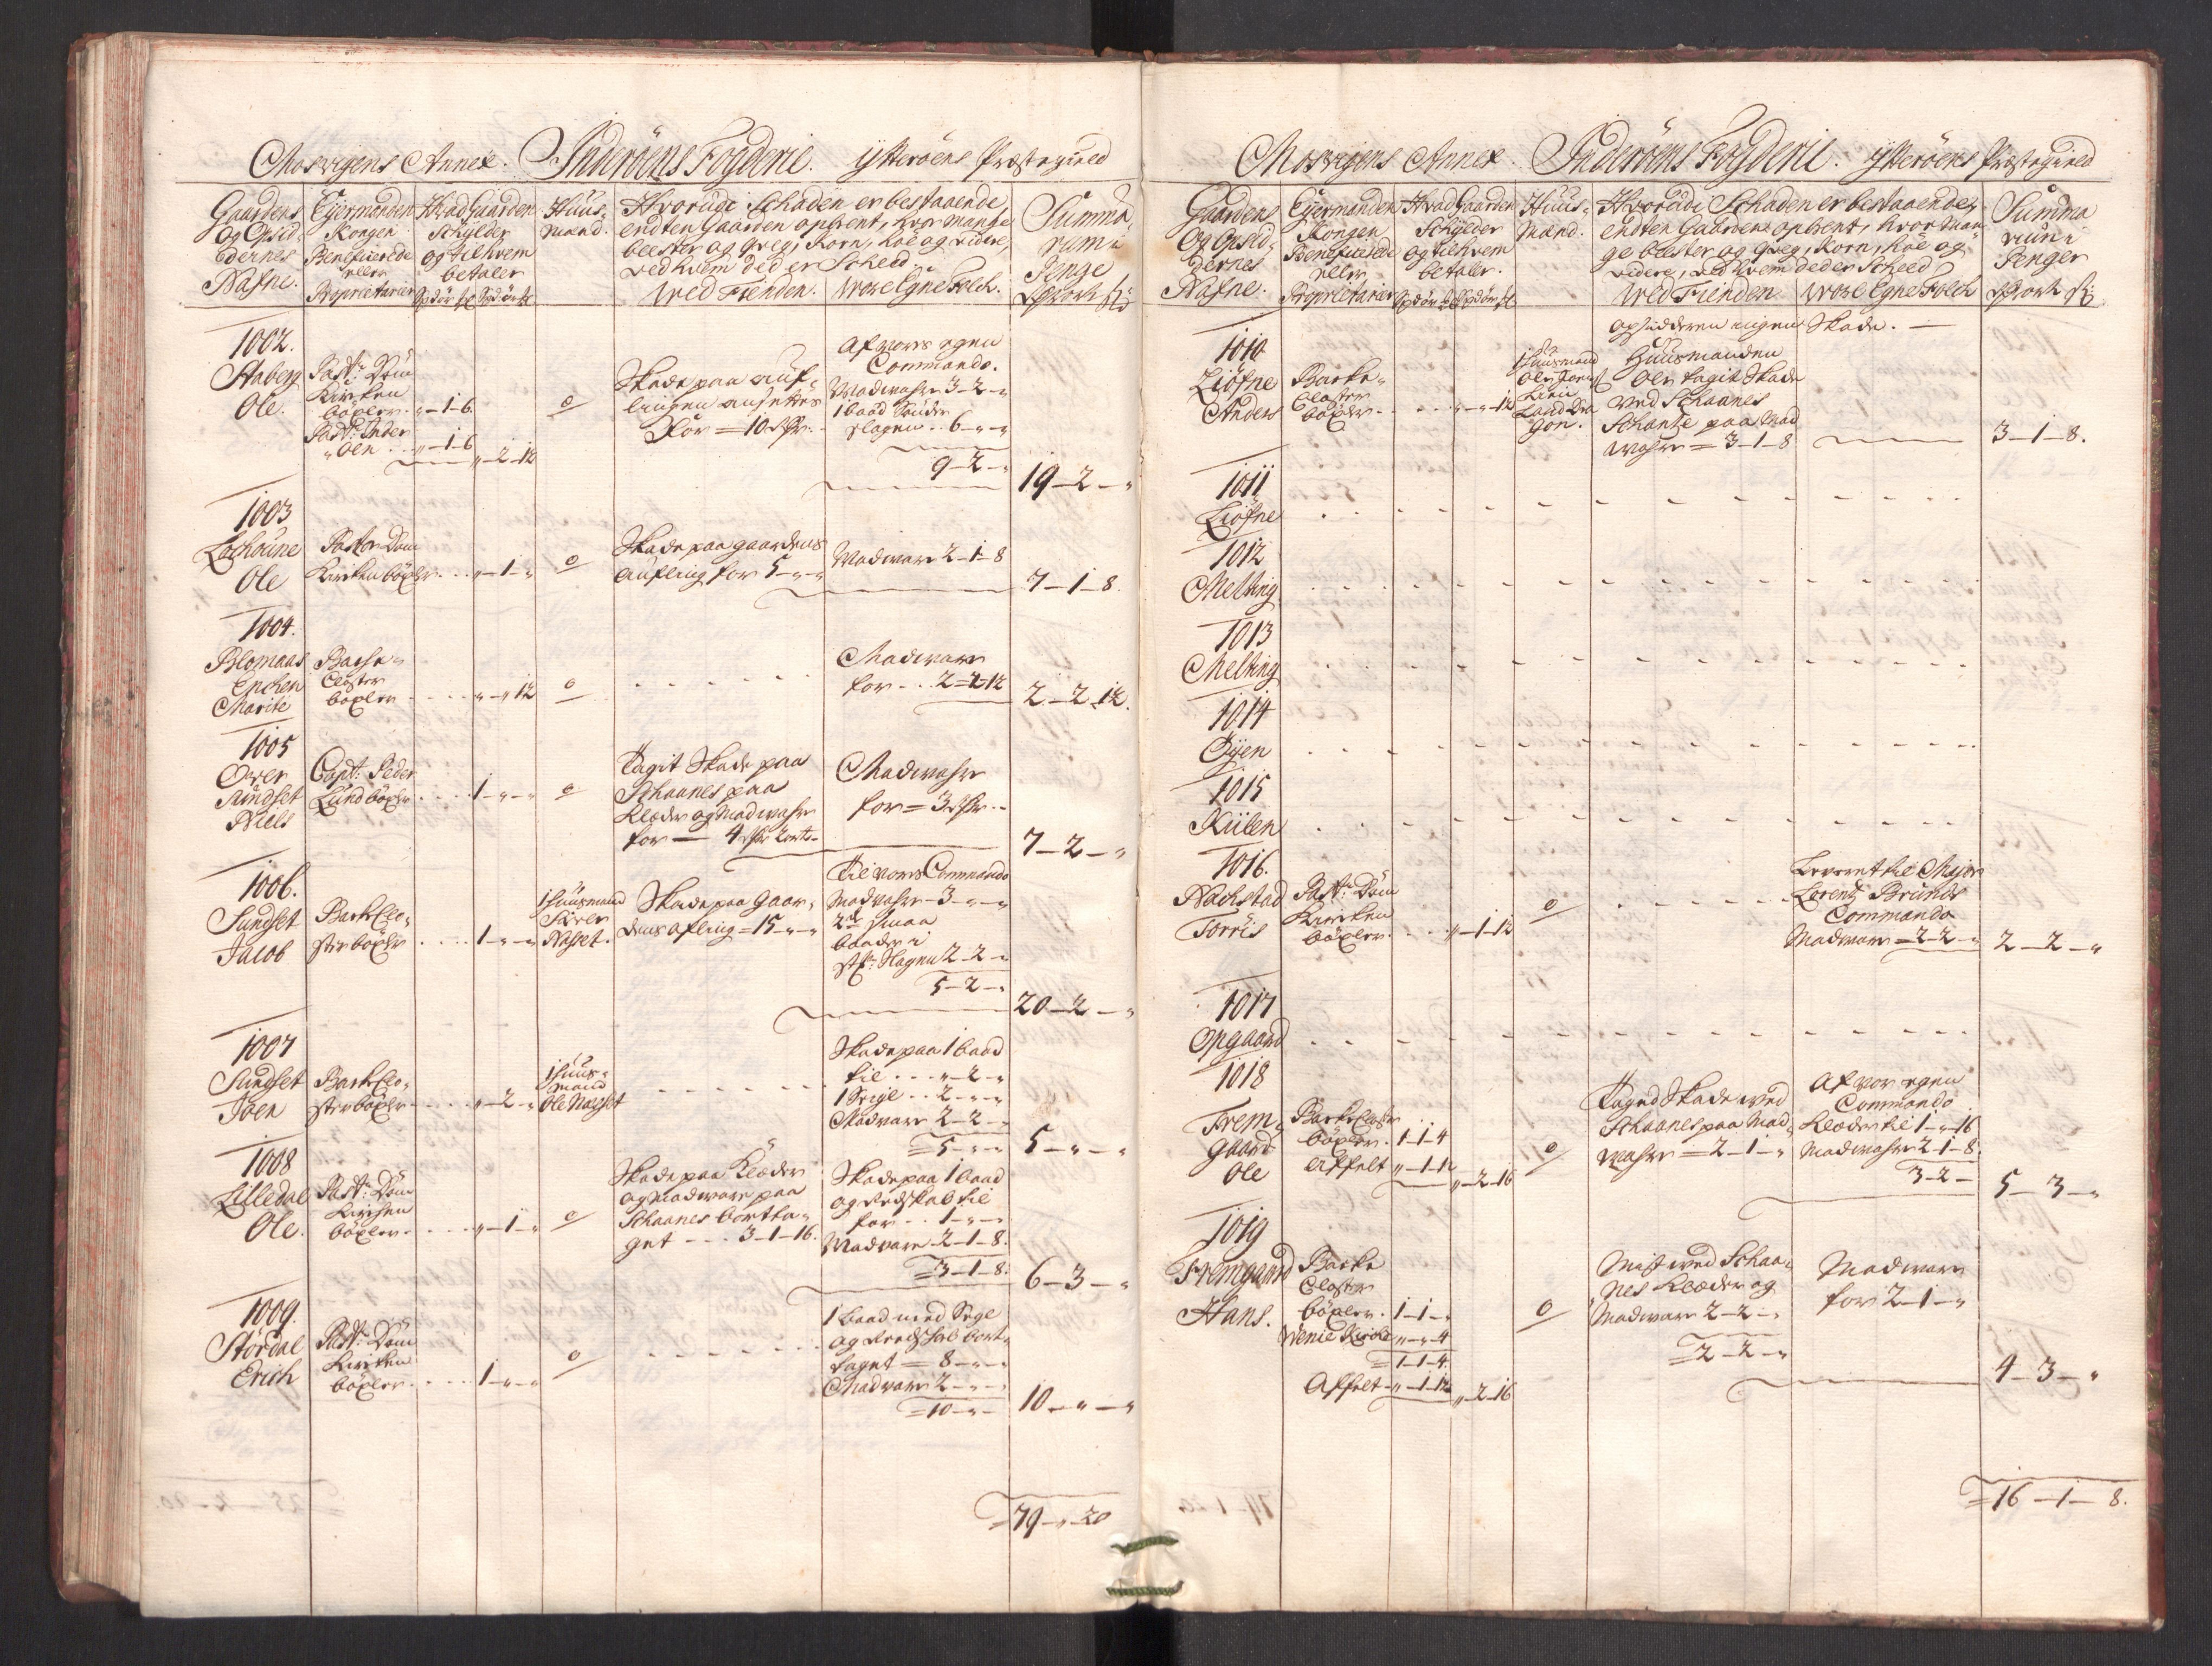 Mosvigens Annex. Inderöens Fogderie. Ytteröens Præstegield
Gaardens
og Opsid-
dernes
Nafne.
Eyermanden
Kongen
Beneficerede
eller
Proprietarier
Hvad Gaarden
Schylder
og til hvem
betaler
Huus-
mænd.
Hvorudi Schaden er bestaaende,
endten Gaarden opbrent, hvor mange
beester og qveg, Korn, höe og videre,
ved hvem ded er Scheed.
Ved Fienden. Vore Egne Folch.
Summa-
rum i
Penge
1002.
Aaberg
Ole.
Past: Dom
Kircken
böxler „-1-6.
Past: Inder
„öen „-1-6
„-2-12
0
Skade paa auf-
lingen ansettes
For = 10 rdr.
Af vores egen
Commando.
Madvahre 3-2-„
1 baad Sönder
slagen 6-„-„
9-2-„
19-2-„
1003
Ole
Past: Dom
Kircken böxler „-1-„
0
Skade paa gaardens
aufling for 5-„-„
Madvare 2-1-8
7-1-8.
1004.
Blomaas
Enchen
Marite
Bache-
Closter
böxler „-„-12
0
Madvare
for 2-2-12
2-2-12.
1005
Over
Sundset
Niels
Capt: Peder
Lund böxler 1-„-„
0
Tagit Skade paa
Schaanes paa
Klæder og Madvahre
for — 4 rdr 2 ort-
Madvahre
for = 3 rdr.
7-2-„
1006.
Sundset
Jacob
Bach Clo-
ster böxler 1-„-„
1 Huusmand
Sören
Nasset.
Skade paa gaar-
dens afling = 15-„-„
Til vores Commando
Madvahre 3-„-„
2de smaa
baader i
Slagen 2-2-„
5-2-„
20-2-„
1007
Sundset
Joen
Bach Clo-
ster böxler „-2-„
1 Huus-
mand
Ole Nasset
Skade paa 1 baad
til „-2-„
1 Seigl 2-„-„
Madvare 2-2-„
=5-„-„
5-„-„
1008
Lilledal
Ole.
Past: Dom
Kirchen
böxler „-1-„
0
Skade paa Klæder
og Madvare paa
Schaanes bortta-
get 3-1-16.
Skade paa 1 baad
og Redskab til
for 1-„-„
Madvare 2-1-8.
=3-1-8.
6-3-„
1009.
Stördal
Erich
Past: Dom
Kircken
böxler 1-„-„
0
1 baad med Segl
og Reedskab bort-
taget = 8-„-„
Madvare 2-„-„
=10-„-
10-„-„
=79-„-20
Mosvigens Annex. Inderöens Fogderie. Ytteröens Præstegield
Gaardens
Og Opsid-
dernes
Nafne.
Eyermanden
Kongen
Beneficerede
eller
Proprietarier
Hvad Gaarden
Schylder
og til hvem
betaler.
Huus-
mænd.
Hvorudi Schaden er bestaaende,
endten Gaardene opbrent, hvor man-
ge beester og qveg, Korn, höe og
videre, ved hvem ded er Scheed
Ved Fienden Vore Egne Folch
Summa
rum i
Penger
1010
Liöfne
Anders
Bache-
Closter
böxler „-„-12
1 Huusmand
Ole
Land Dra
gon.
opsidderen ingen Skade.
Huusmanden
Ole tagit Skade
ved Schaanes
Schantze paa Mad
vahre = 3-1-8
3-1-8.
1011
Liöfne
1012
Melting
1013
Melting
1014
Öyen
1015
Kiilen
1016.
Nachstad
Torris
Past: Dom
Kircken
böxler. „-1-12
0
Leveret til Major
Lorentz Bruuns
Commando
Madvare = 2-2-„
2-2-„
1017
Opgaard
1018
Frem-
gaard
Ole
Bache Closter
böxler. 1-1-4
Affelt „-1-12
„-2-16
0
Taged Skade ved
Schaanes paa Mad-
vahre = 2-1-„
Af vor egen
Commando
Klæder til 1-„-16
Madvahre 2-1-8.
3-2-
5-3-„
1019
Fremgaard
Hans.
Bache
Closter
böxler. 1-1-„
Venie Kirche „-„-4
=1-1-4.
Affelt „-1-12
„-2-16
0
Mist ved Schaa-
nes Klæder og
Madvare 2-2-„
=2-2-„
Madvare
for 2-1-„
4-3-„
=16-1-8.